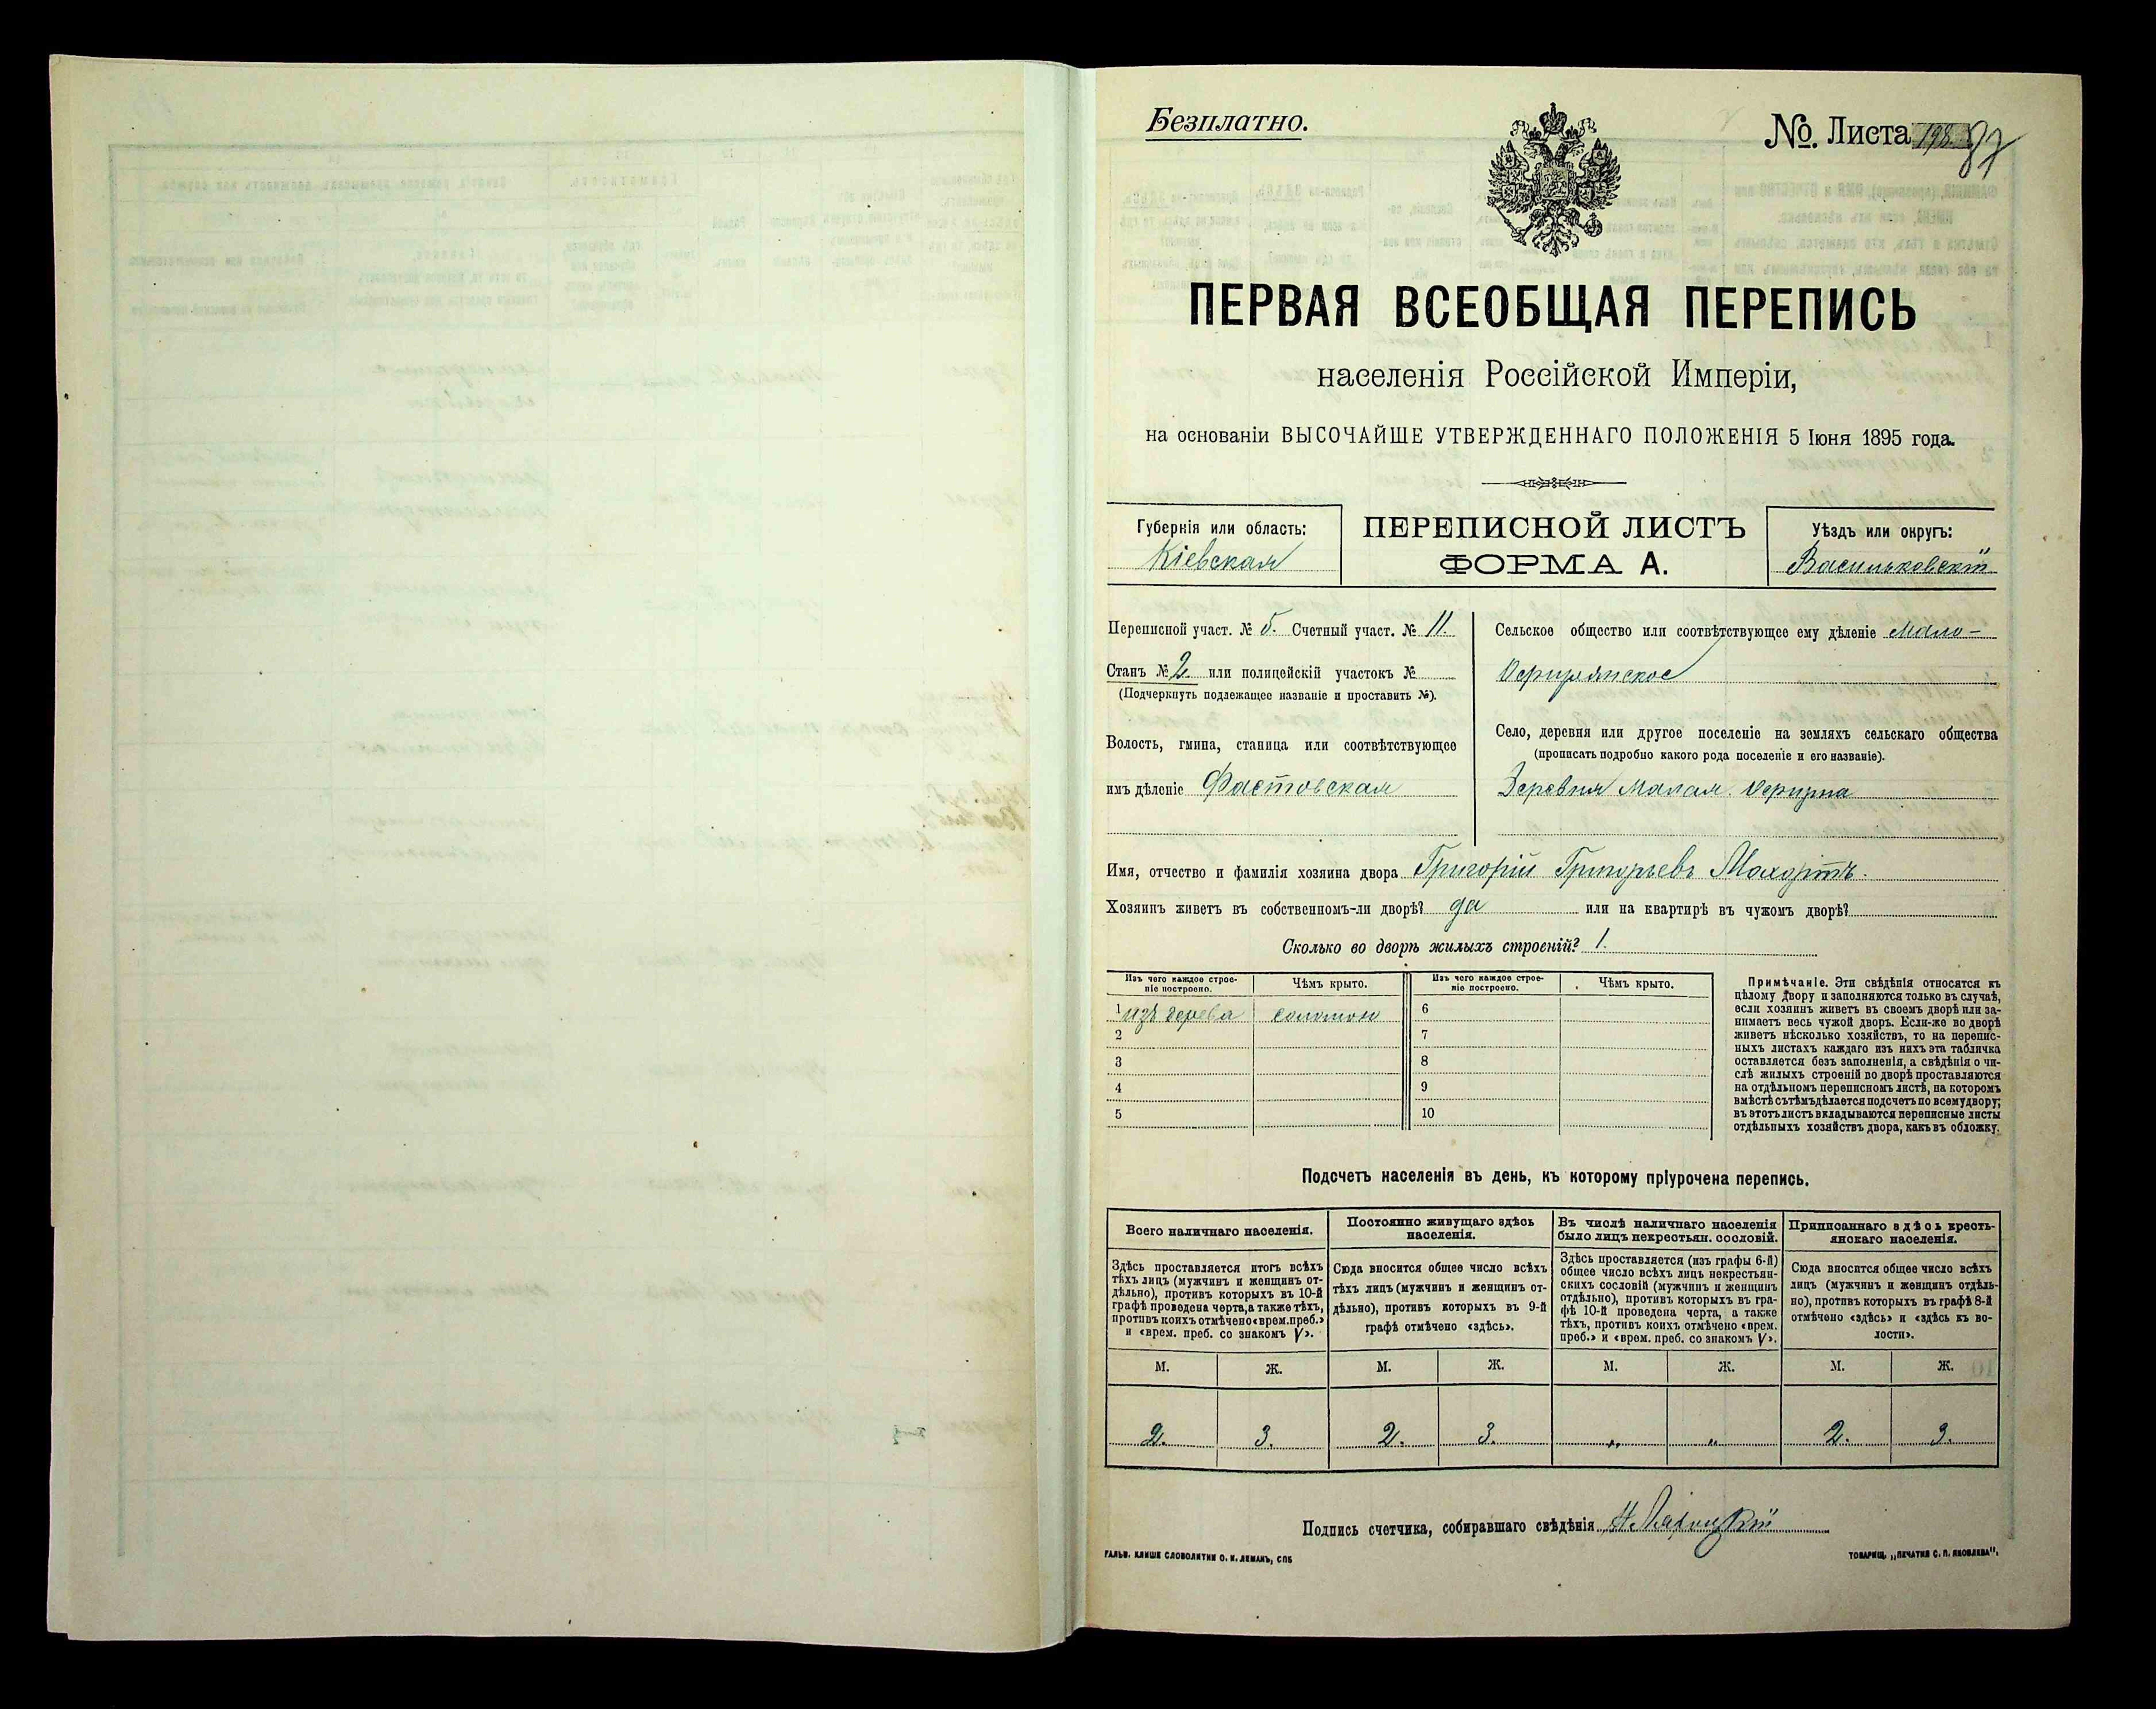 Безплатно.
№. Листа 87
ПЕРВАЯ ВСЕОБЩАЯ ПЕРЕПИСЬ
населенія Россійской Имперіи,
на основаніи ВЫСОЧАЙШЕ УТВЕРЖДЕННАГО ПОЛОЖЕНІЯ 5 Іюня 1895 года.
Губернія или область:
Кіевская
ПЕРЕПИСНОЙ ЛИСТЪ
ФОРМА А.
Уѣздъ или округъ:
Васильковскій
Переписной участ. № 5. Счетный участ. № 11.
Станъ № 2 или полицейскій участокъ №
(Подчеркнуть подлежащее названіе и проставить №).
Волость, гмина, станица или соотвѣтствующее
имъ дѣленіе Фастовская
Сельское общество или соотвѣтствующее ему дѣленіе Мало-
Офирнянское
Село, деревня или другое поселеніе на земляхъ сельскаго общества
(прописать подробно какого рода поселеніе и его названіе).
Деревня Малая Офирна
Имя, отчество и фамилія хозяина двора Григорій Григорьевъ Махортъ.
Хозяинъ живетъ въ собственномъ-ли дворѣ? да или на квартирѣ въ чужомъ дворѣ?
Сколько во дворѣ жилыхъ строеній? 1.
Изъ чего каждое строе-
ніе построено.
Чѣмъ крыто.
Изъ чего каждое строе-
ніе построено.
Чѣмъ крыто.
1 изъ дерева соломою 6
2 7
3 8
4 9
5 10
Примѣчаніе. Эти свѣдѣнія относятся къ
цѣлому двору и заполняются только въ случаѣ,
если хозяинъ живетъ въ своемъ дворѣ или за-
нимаетъ весь чужой дворъ. Если-же во дворѣ
живетъ нѣсколько хозяйствъ, то на перепис-
ныхъ листахъ каждаго изъ нихъ эта табличка
оставляется безъ заполненія, а свѣдѣнія о чи-
слѣ жилыхъ строеній во дворѣ проставляются
на отдѣльномъ переписномъ листѣ, на которомъ
вмѣстѣ съ тѣмъ дѣлается подсчетъ по всему двору;
въ этотъ листъ вкладываются переписные листы
отдѣльныхъ хозяйствъ двора, какъ въ обложку.
Подсчетъ населенія въ день, къ которому пріурочена перепись.
Всего наличнаго населенія.
Здѣсь проставляется итогъ всѣхъ
тѣхъ лицъ (мужчинъ и женщинъ от-
дѣльно), противъ которыхъ въ 10-й
графѣ проведена черта, а также тѣхъ,
противъ коихъ отмѣчено «врем. преб.»
и «врем. преб. со знакомъ V».
Постоянно живущаго здѣсь
населенія.
Сюда вносится общее число всѣхъ
тѣхъ лицъ (мужчинъ и женщинъ от-
дѣльно), противъ которыхъ въ 9-й
графѣ отмѣчено «здѣсь».
Въ числѣ наличнаго населенія
было лицъ некрестьян. сословій.
Здѣсь проставляется (изъ графы 6-й)
общее число всѣхъ лицъ некрестьян-
скихъ сословій (мужчинъ и женщинъ
отдѣльно), противъ которыхъ въ гра-
фѣ 10-й проведена черта, а также
тѣхъ, противъ коихъ отмѣчено «врем.
преб.» и «врем. преб. со знакомъ V».
Приписаннаго здѣсь кресть-
янскаго населенія.
Сюда вносится общее число всѣхъ
лицъ (мужчинъ и женщинъ отдѣль-
но), противъ которыхъ въ графѣ 8-й
отмѣчено «здѣсь» и «здѣсь къ во-
лости».
М. Ж. М. Ж. М. Ж. М. Ж.
2. 3. 2. 3. „ „ 2. 3.
Подпись счетчика, собиравшаго свѣдѣнія
ГАЛЬВ. КЛИШЕ СЛОВОЛИТНИ О. И. ЛЕМАНЪ, СПБ
ТОВАРИЩ. „ПЕЧАТНЯ С. П. ЯКОВЛЕВА".